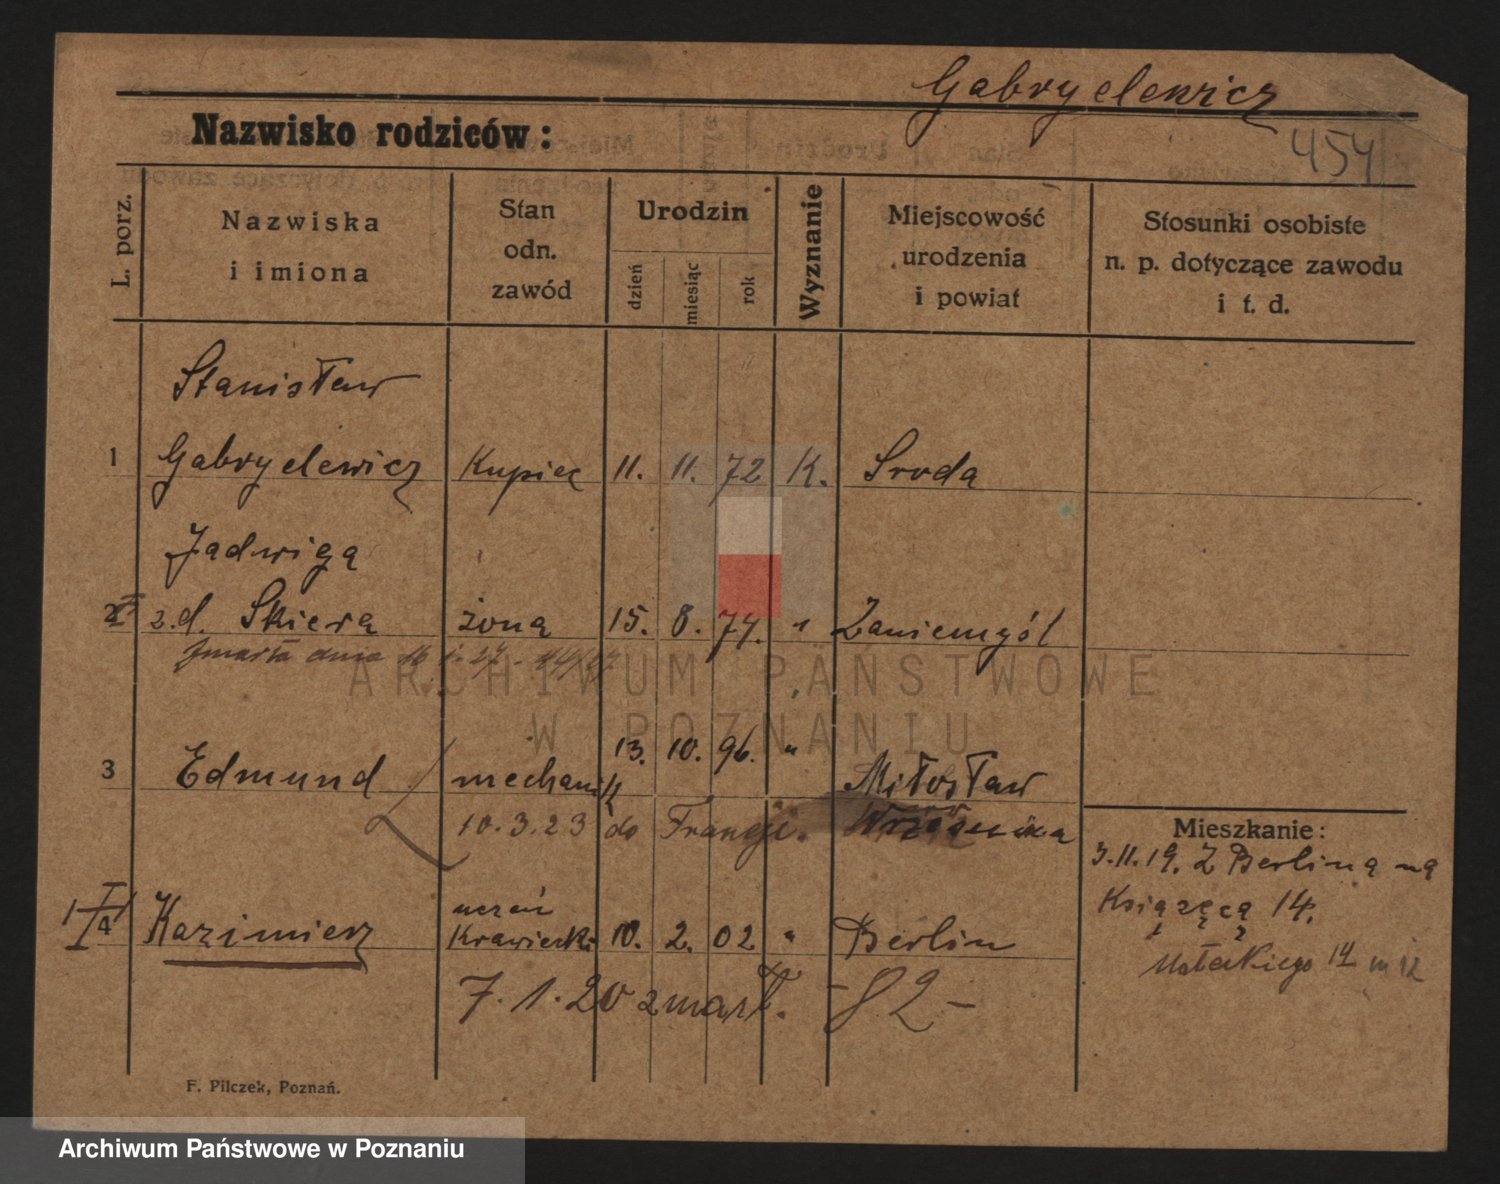 Gabryelewicz
Nazwisko rodziców:
454
L. porz.
Nazwiska
i imiona
Stan
odn.
zawód
Urodzin
dzień
miesiąc
rok
Wyznanie
Miejscowość
urodzenia
i powiat
Stosunki osobiste
n. p. dotyczące zawodu
i t. d.
Stanisław
1 Gabryelewicz Kupiec 11. 11. 72 K. Sroda
Jadwiga
2 z.d. Skiera żona 15. 8. 74. " Zaniemyśl
zmarła dnia
ARCHIWUM PAŃSTWOWE
W POZNANIU
3 Edmund mechanik 13. 10. 96. " Miłosław
10.3.23 do Francji. Września
Mieszkanie:
3.11.19. Z Berlina na
Książęca 14.
uczeń
4 Kazimierz Krawiecki 10. 2. 02 " Berlin
Małeckiego 14 m 12
7.1.20 zmarł. - 82 -
F. Pilczek, Poznań.
Archiwum Państwowe w Poznaniu